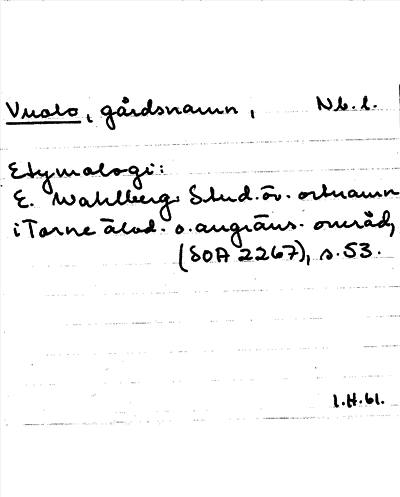 Vuolo, gårdsnamn, Nb. l.
Etymologi:
E. Wahlberg. Stud. öv. ortnamn
i Torne älvd. o. angräns. områd.
(SOA 2267), s. 53.
1.H.61.